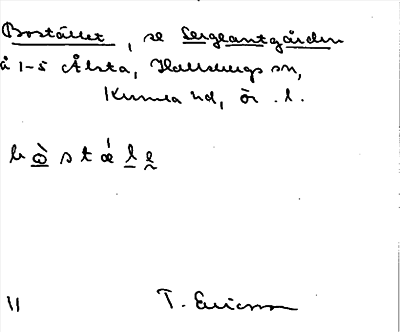 Bostället, se Sergeantgården
å 1-5 Ålsta, Hallsbergs sn,
Kumla hd, Ör. l.
bòstǽlle
11
T. Ericsson